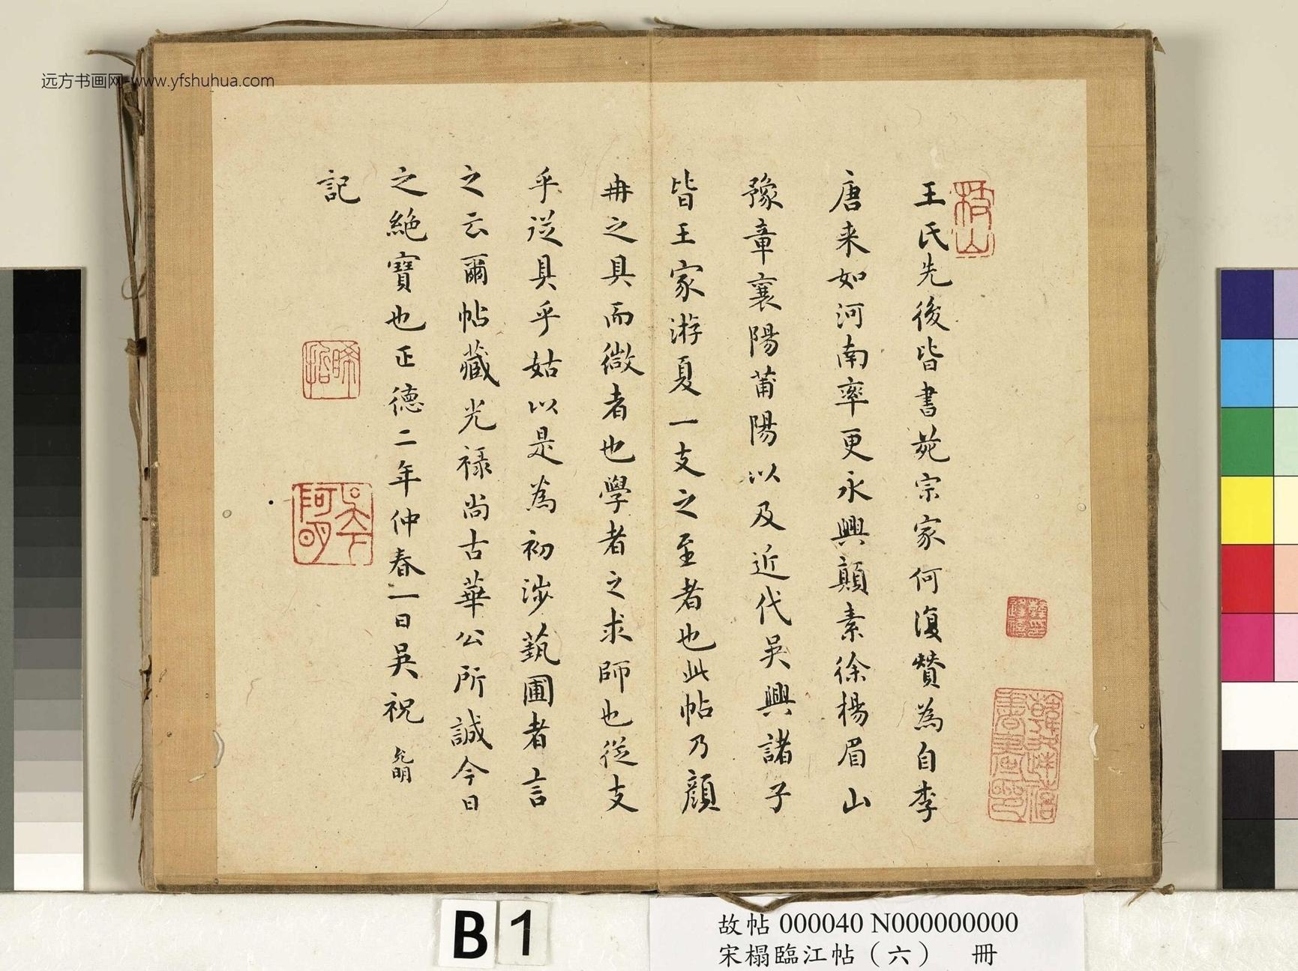 远方书画网-www.yfshuhua.com
枝山
王氏先後皆書苑宗家何復贊為自李
唐来如河南率更永興顛素徐楊眉山
豫章襄陽莆陽以及近代吳興諸子
皆王家游夏一支之至者也此帖乃顏
冉之具而微者也學者之求師也從支
乎從具乎姑以是為初涉蓺圃者言
之云爾帖藏光祿尚古華公所誠今日
之絕寶也正德二年仲春一日吳祝允明
記
晞哲
B1
故帖 000040 N000000000
宋榻臨江帖（六） 冊